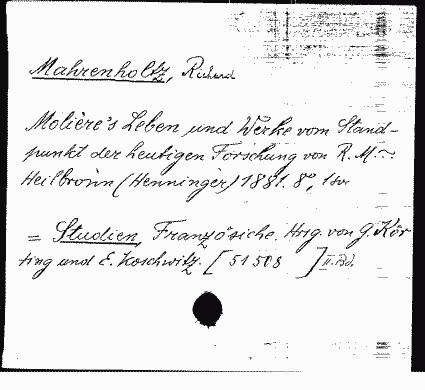 Mahrenholtz, Richard
Molière's Leben und Werke vom Stand-
punkt der heutigen Forschung von R. M~
Heilbronn (Henninger) 1881. 8°,
= Studien, Französiche. Hrsg. von G. Kör
ting und E. Koschwitz. [51508 ] II. Bd.